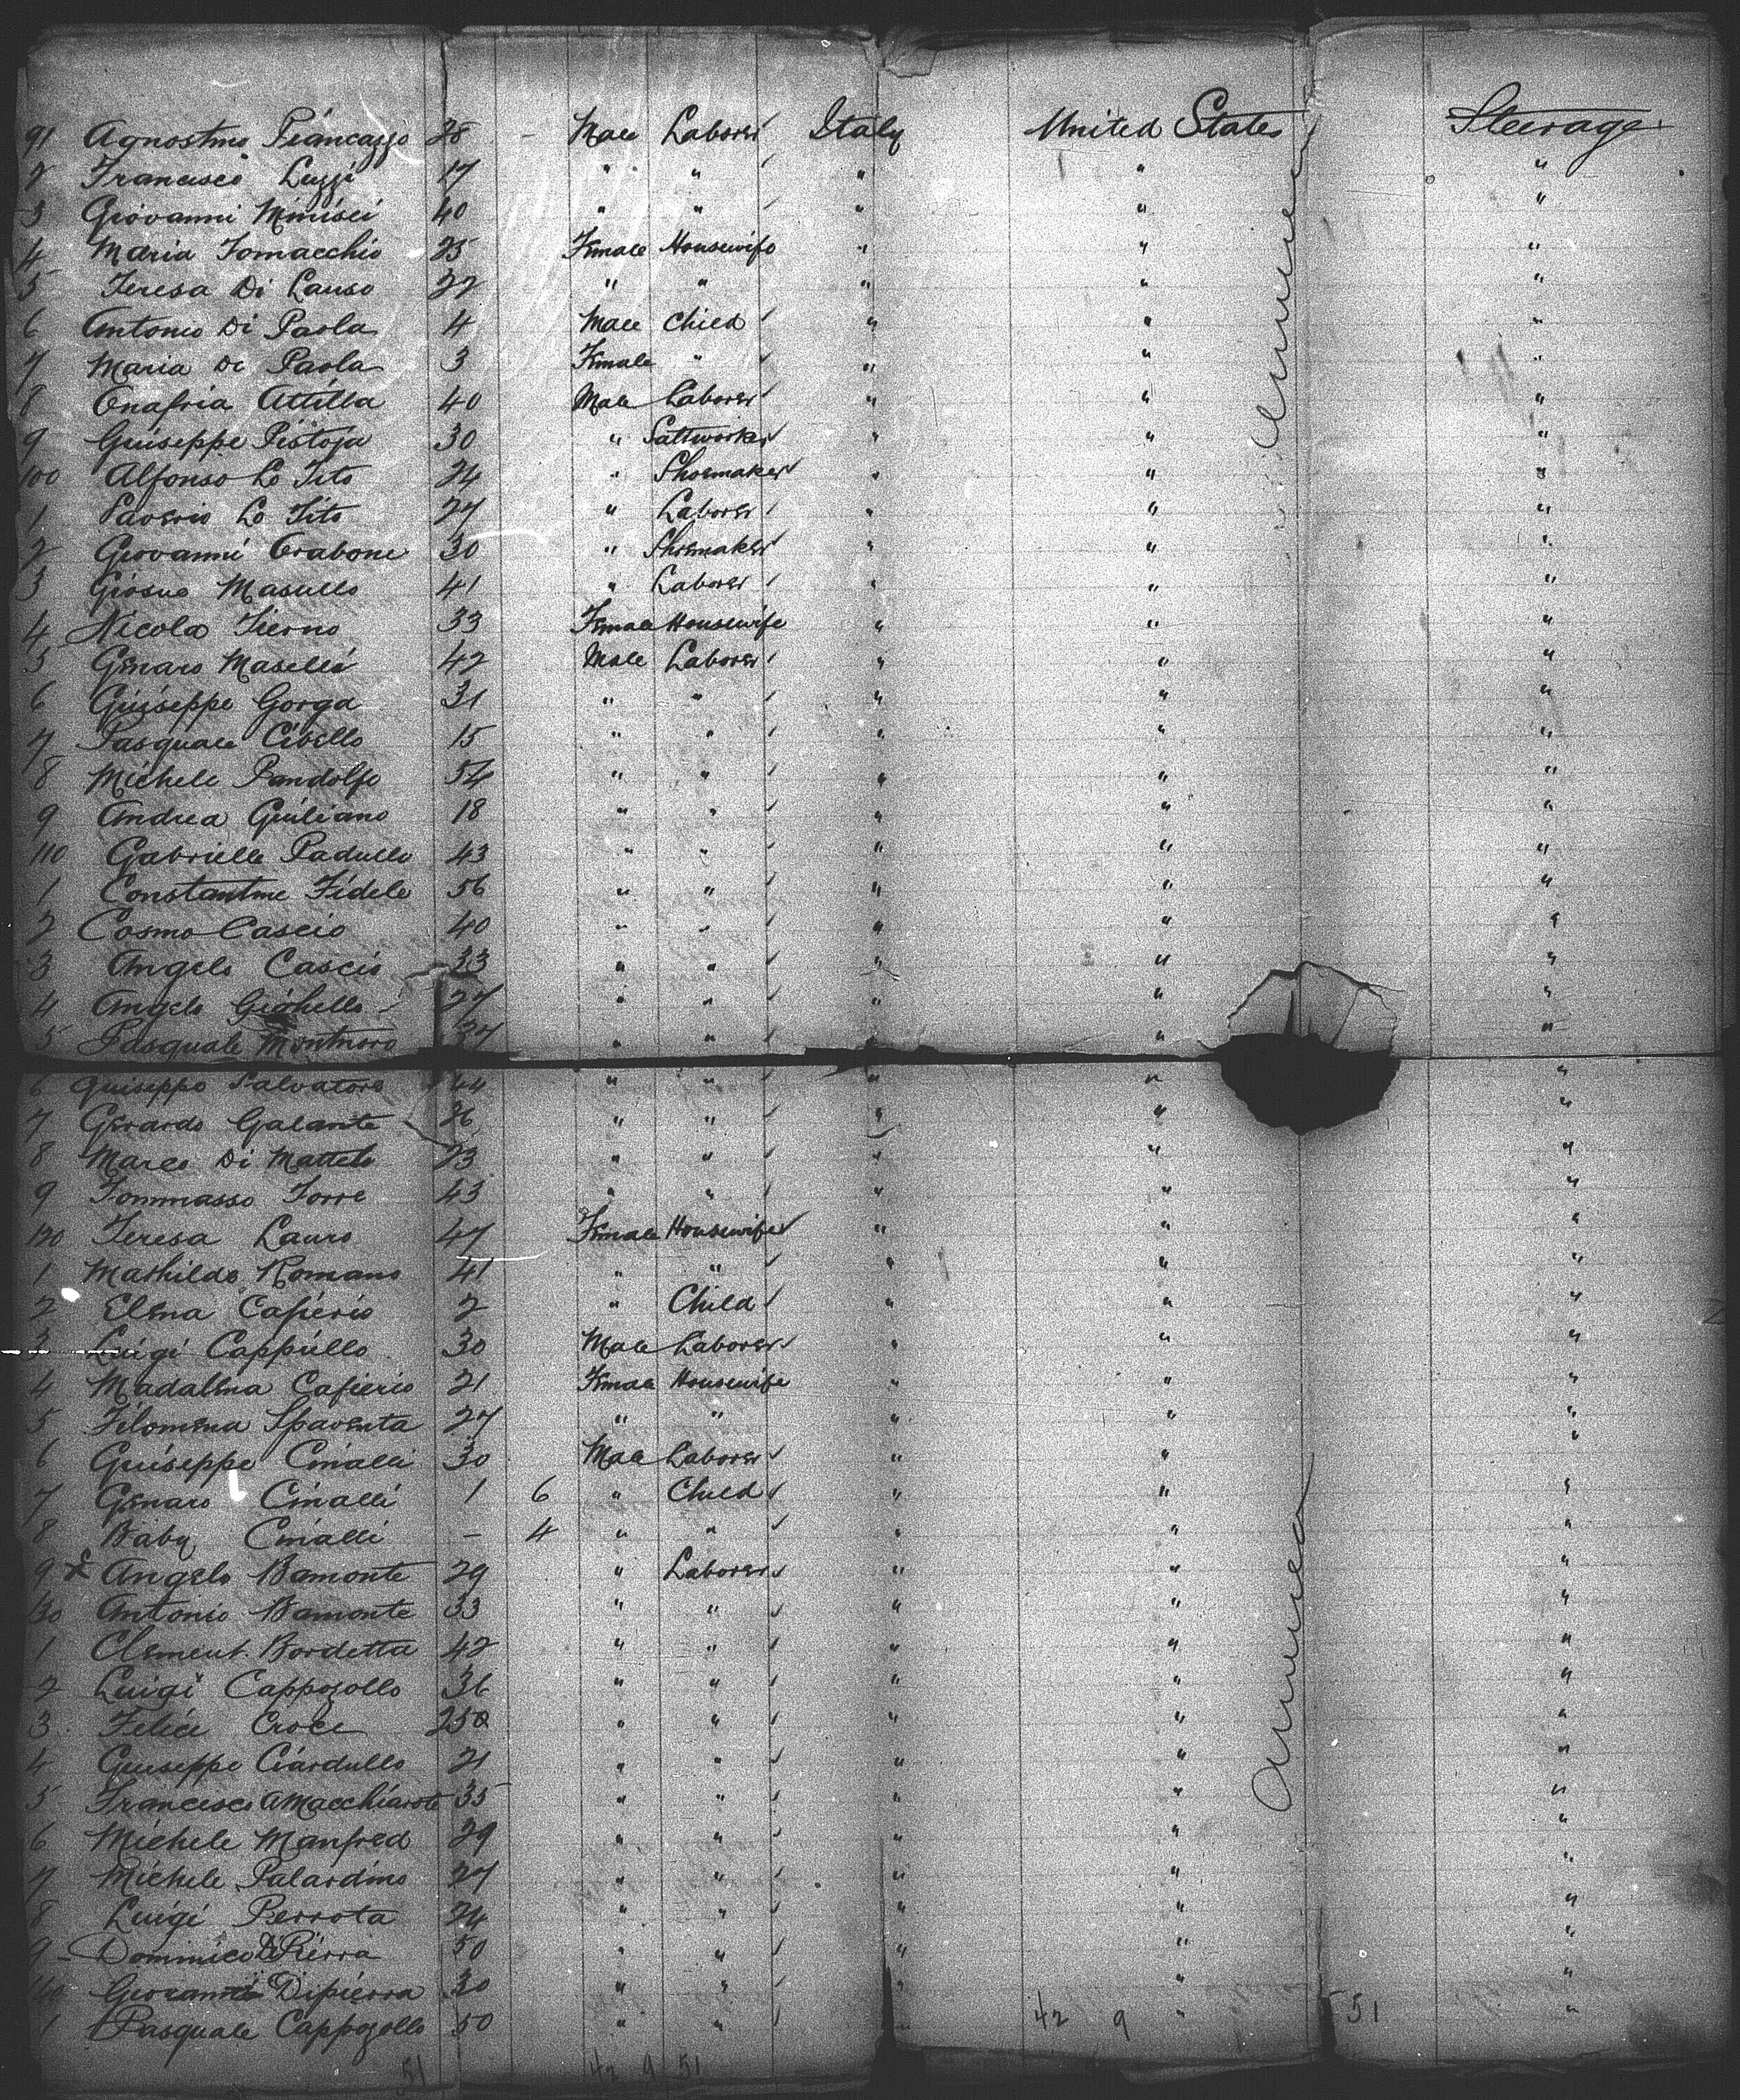 91 Agnostino Piancazzo 28 - Male Laborer Italy United States Steerage
2 Francisco Luzzi 17 " " " " "
3 Giovanni Minisci 40 " " " " "
4 Maria Tomacchio 25 Female Housewife " " "
5 Teresa Di Lauso 22 " " " " "
6 Antonio Di Paola 4 Male Child " " "
7 Maria Di Paola 3 Female " " " "
8 Onafria Attilla 40 Male Laborer " " "
9 Guiseppe Pistoja 30 " Saltworker " " "
100 Alfonso Lo Tito 24 " Shoemaker " " "
1 Saverio Lo Tito 27 " Laborer " " "
2 Giovanni Grabone 30 " Shoemaker " " "
3 Giosue Masullo 41 " Laborer " " "
4 Nicola Fierno 33 Female Housewife " " "
5 Genaro Maselli 42 Male Laborer " " "
6 Guiseppe Gorga 31 " " " " "
7 Pasquale Cibello 15 " " " " "
8 Michele Pandolfo 54 " " " " "
9 Andrea Giuliano 18 " " " " "
110 Gabrielle Padullo 43 " " " " "
1 Constantine Fidele 56 " " " " "
2 Cosmo Cascio 40 " " " " "
3 Angelo Cascio 33 " " " " "
4 Angelo 27 " " " " "
5 Pasquale 37 " " " " "
6 Guiseppe Salvatore 44 " " " " "
7 Gerardo Galante 36 " " " " "
8 Marco Di Matteo 23 " " " " "
9 Tommasso Torre 43 " " " " "
120 Teresa Lauro 47 Female Housewife " " "
1 Mathilde Romano 41 " " " " "
2 Elena Cafierio 2 " Child " " "
3 Luigi Cappiello 30 Male Laborer " " "
4 Madalena Cafierio 21 Female Housewife " " "
5 Filomena Spaventa 27 " " " " "
6 Guiseppe Cinalli 30 Male Laborer " " "
7 Genaro Cinalli 1 6 " Child " " "
8 Baby Cinalli - 4 " " " " "
9 x Angelo Bamonte 29 " Laborer " " "
130 Antonio Bamonte 33 " " " " "
1 Clement. Bordetta 42 " " " " "
2 Luigi Cappozollo 36 " " " " "
3 Felice Croce 25 " " " " "
4 Guiseppe Ciardullo 21 " " " " "
5 Francesco Macchiarole 35 " " " " "
6 Michele Manfred 29 " " " " "
7 Michele Palardino 27 " " " " "
8 Luigi Perrota 24 " " " " "
9 Dominico Di Pierra 50 " " " " "
140 Giovanni Dipierra 30 " " " " "
1 Pasquale Cappozollo 50 " " " " "
42 9 51
51 42 9 51